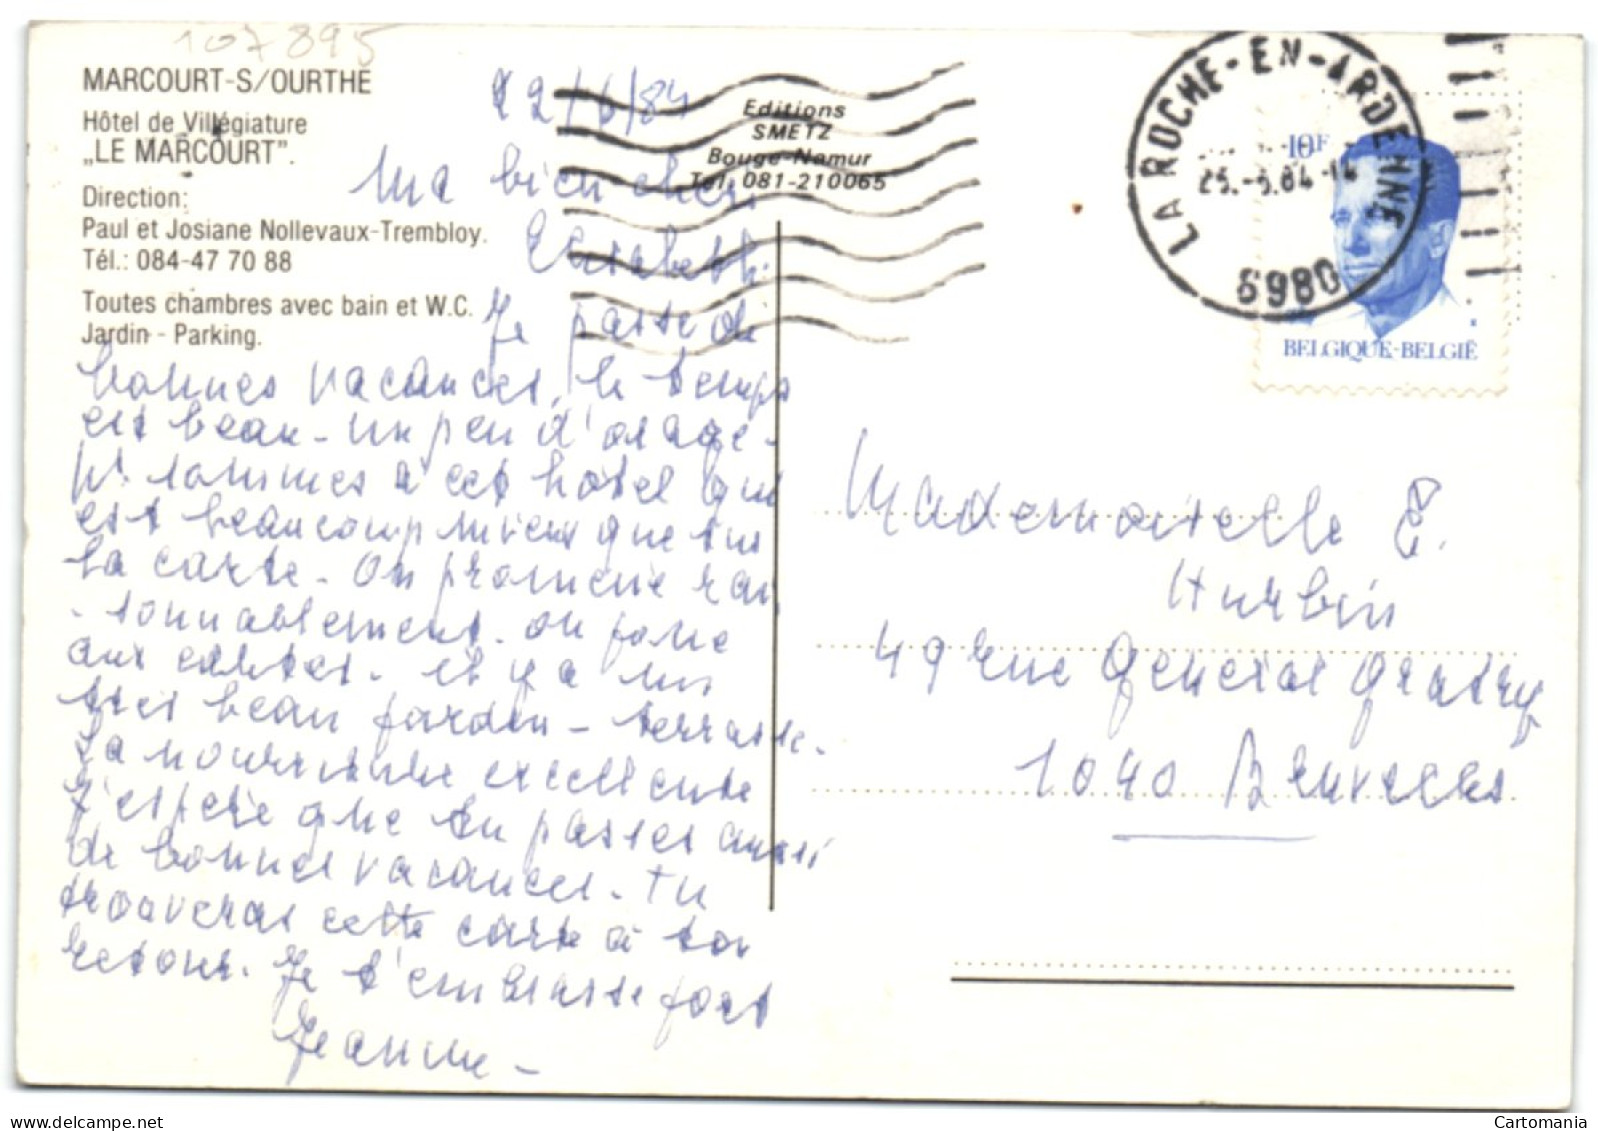 107895
MARCOURT-S/OURTHE
Hôtel de Villégiature
„LE MARCOURT".
Direction:
Paul et Josiane Nollevaux-Trembloy.
Tél.: 084-47 70 88
Toutes chambres avec bain et W.C.
Jardin - Parking.
22/6/84
Ma bien chère
Elisabeth.
Je passe de
bonnes vacances, le temps
est beau - un peu d'orage -
ns sommes à cet hôtel qui
est beaucoup mieux que sur
la carte - On promène rai
- sonnablement. on joue
aux cartes - il y a un
très beau jardin - terrasse -
La nourriture excellente
J'espère que tu passes aussi
de bonnes vacances - Tu
trouveras cette carte à ton
retour. Je t'embrasse fort
Jeanne -
Editions
SMETZ
Bouge-Namur
Tel. 081-210065
LA ROCHE-EN-ARDENNE
25.-6.84-14
6980
10F
BELGIQUE-BELGIË
Mademoiselle E.
Hurbin
49 rue Général Gratry
1040 Bruxelles
Cartomania